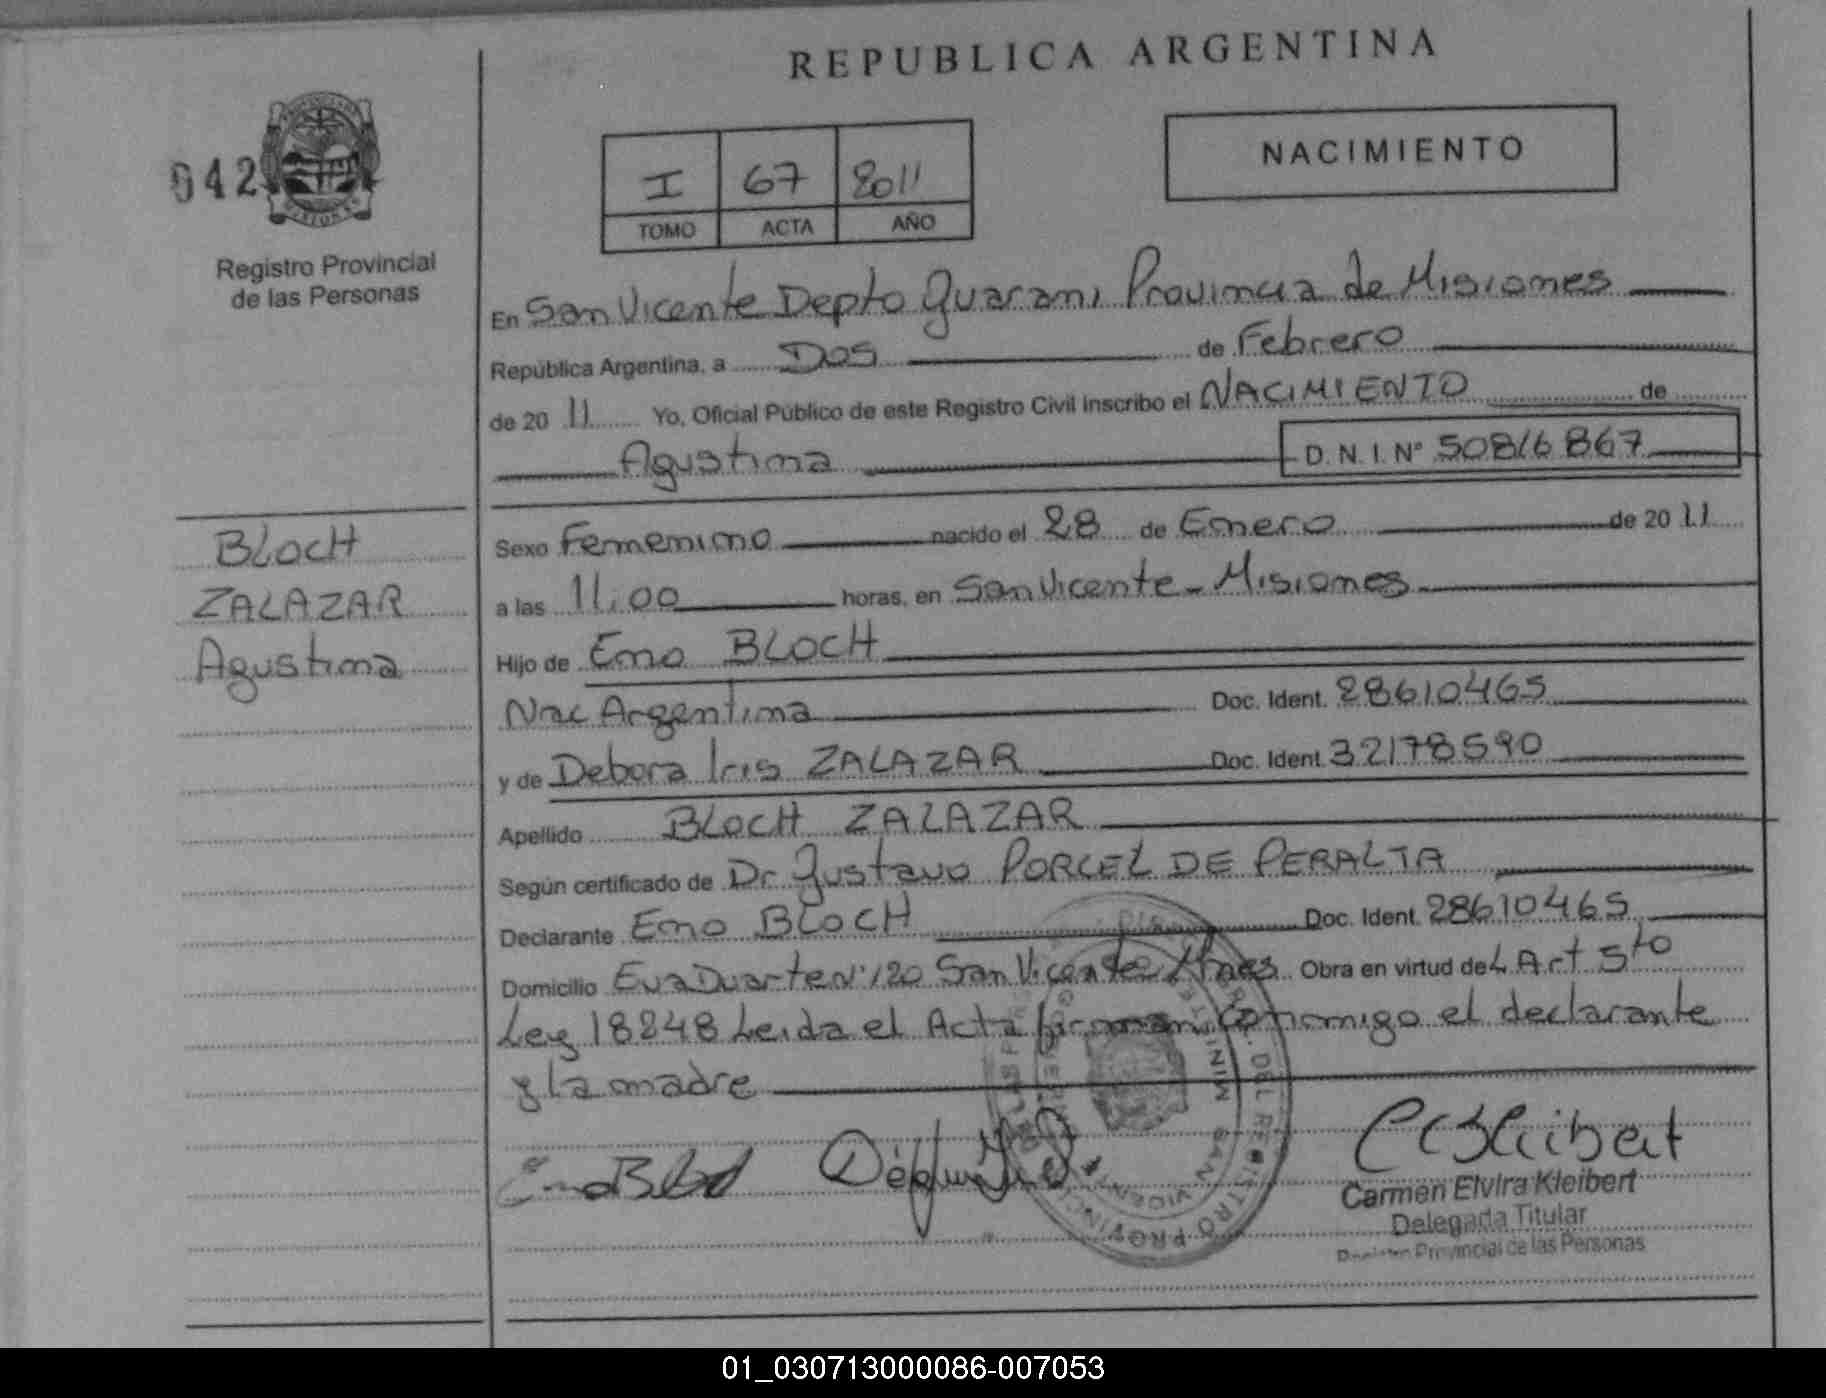 REPUBLICA ARGENTINA
042
Registro Provincial
de las Personas
I 67 2011
TOMO ACTA AÑO
NACIMIENTO
En San Vicente Depto Guarani Provincia de Misiones
República Argentina, a Dos de Febrero
de 20 11 Yo, Oficial Público de este Registro Civil inscribo el NACIMIENTO de
Agustina D.N.I. Nº 50816867
BLOCH
ZALAZAR
Agustina
Sexo Femenino nacido el 28 de Enero de 20 11
a las 11.00 horas, en San Vicente - Misiones
Hijo de Eno BLOCH
Nac Argentina Doc. Ident. 28610465
y de Debora Iris ZALAZAR Doc. Ident. 32178590
Apellido BLOCH ZALAZAR
Según certificado de Dr Gustavo PORCEL DE PERALTA
Declarante Eno BLOCH Doc. Ident. 28610465
Domicilio Eva Duarte Nº 120 San Vicente Mnes Obra en virtud del Art 5to
Ley 18248 Leida el Acta firman conmigo el declarante
y la madre
Carmen Elvira Kleibert
Delegada Titular
Registro Provincial de las Personas
01_030713000086-007053